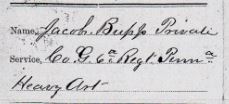 Name, Jacob Bupp Private
Service, Co. G. 6a Regt Penna
Heavy Art